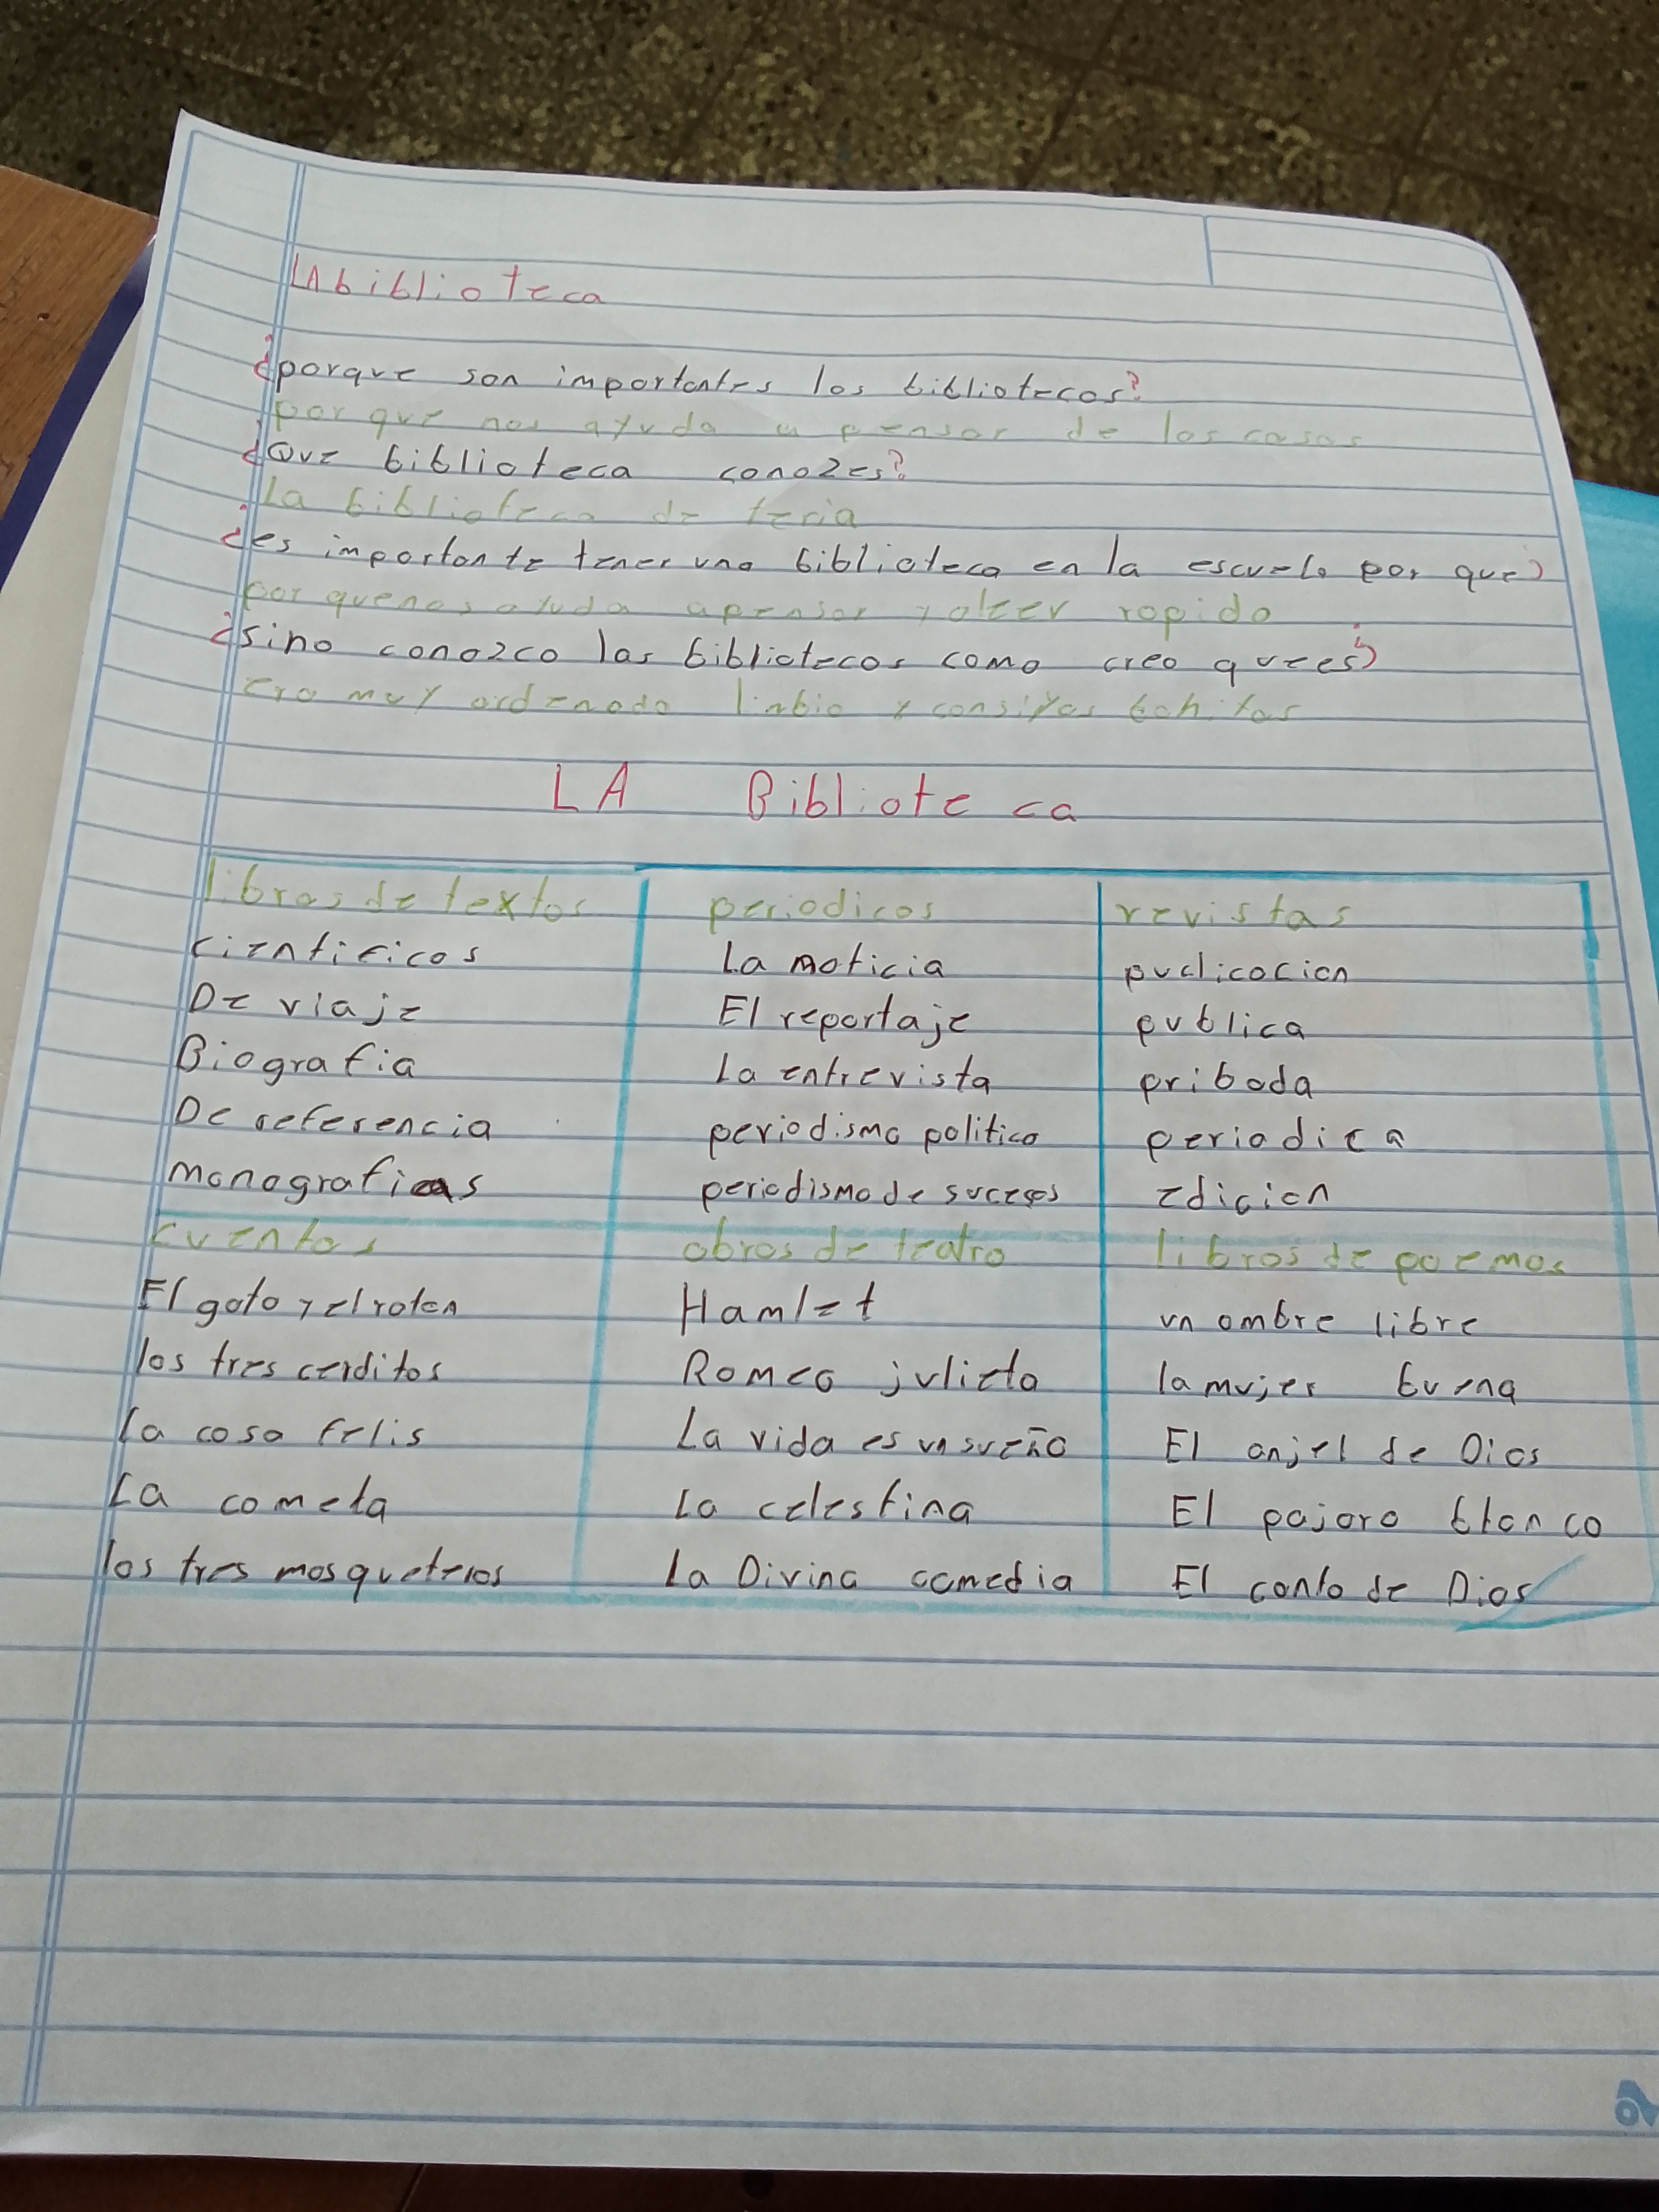 LA biblioteca
¿porque son importantes las bibliotecas?
por que nos ayuda a pensar de las casas
¿Que biblioteca conozes?
La biblioteca de feria
¿es importante tener una biblioteca en la escuela por que?
por que nos ayuda apensar y leer rapido
¿sino conozco las bibliotecas como creo que es?
era muy ordenado linbio y con
LA Biblioteca
libros de textos periodicos revistas
cientificos La noticia puclicacion
De viaje El reportaje publica
Biografia La entrevista pribada
De referencia periodismo politico periodica
monograficas periodismo de sucesos edicion
cuentos obras de teatro libros de poemas
El gato y el raton Hamlet un ombre libre
los tres cerditos Romeo julieta la mujer buena
la casa felis La vida es un sueño El anjel de Dios
La cometa La celestina El pajaro blanco
los tres mosqueteros La Divina comedia El canto de Dios